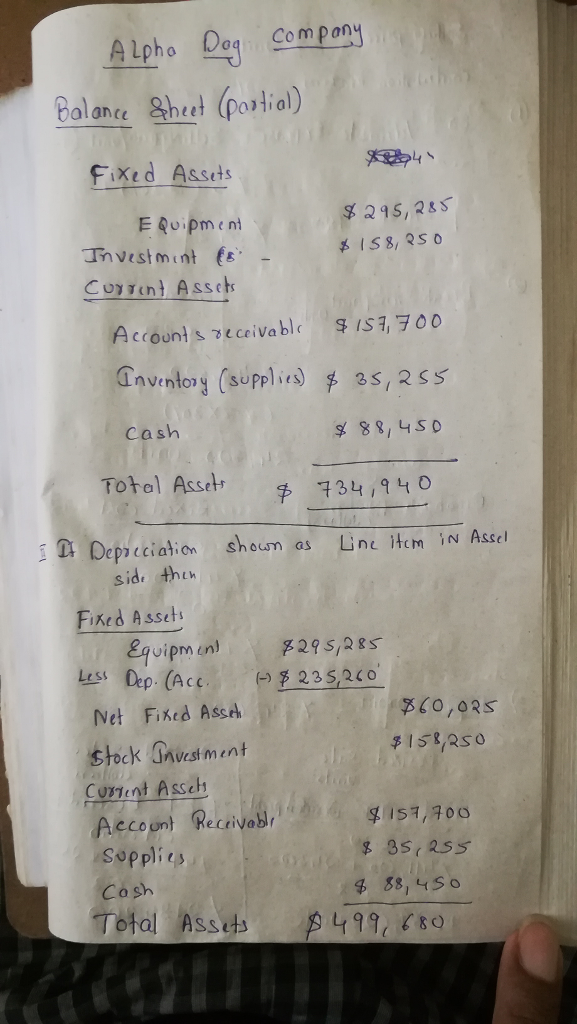 Alpha Dog Company
Balance Sheet (partial)
Fixed Assets
Equipment $295,285
Investment - $158,250
Current Assets
Accounts receivable $157,700
Inventory (supplies) $ 35,255
Cash $ 88,450
Total Assets $ 734,940
If Depreciation shown as Line item iN Asset
side then
Fixed Assets
Equipment $295,285
Less Dep. (Acc. (-) $ 235,260
Net Fixed Asset $60,025
Stock Investment $158,250
Current Assets
Account Receivable $157,700
Supplies $ 35,255
Cash $ 88,450
Total Assets $499,680